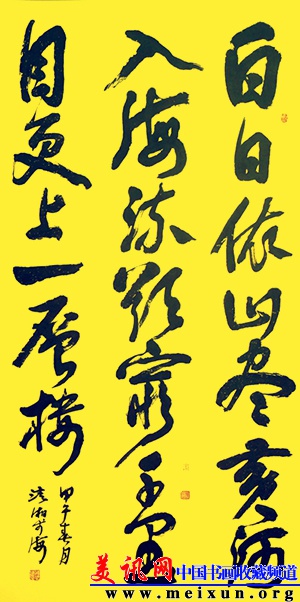 白日依山尽黄河
入海流欲穷千里
目更上一层楼
甲午春月
美讯网 中国书画收藏频道
www.meixun.org